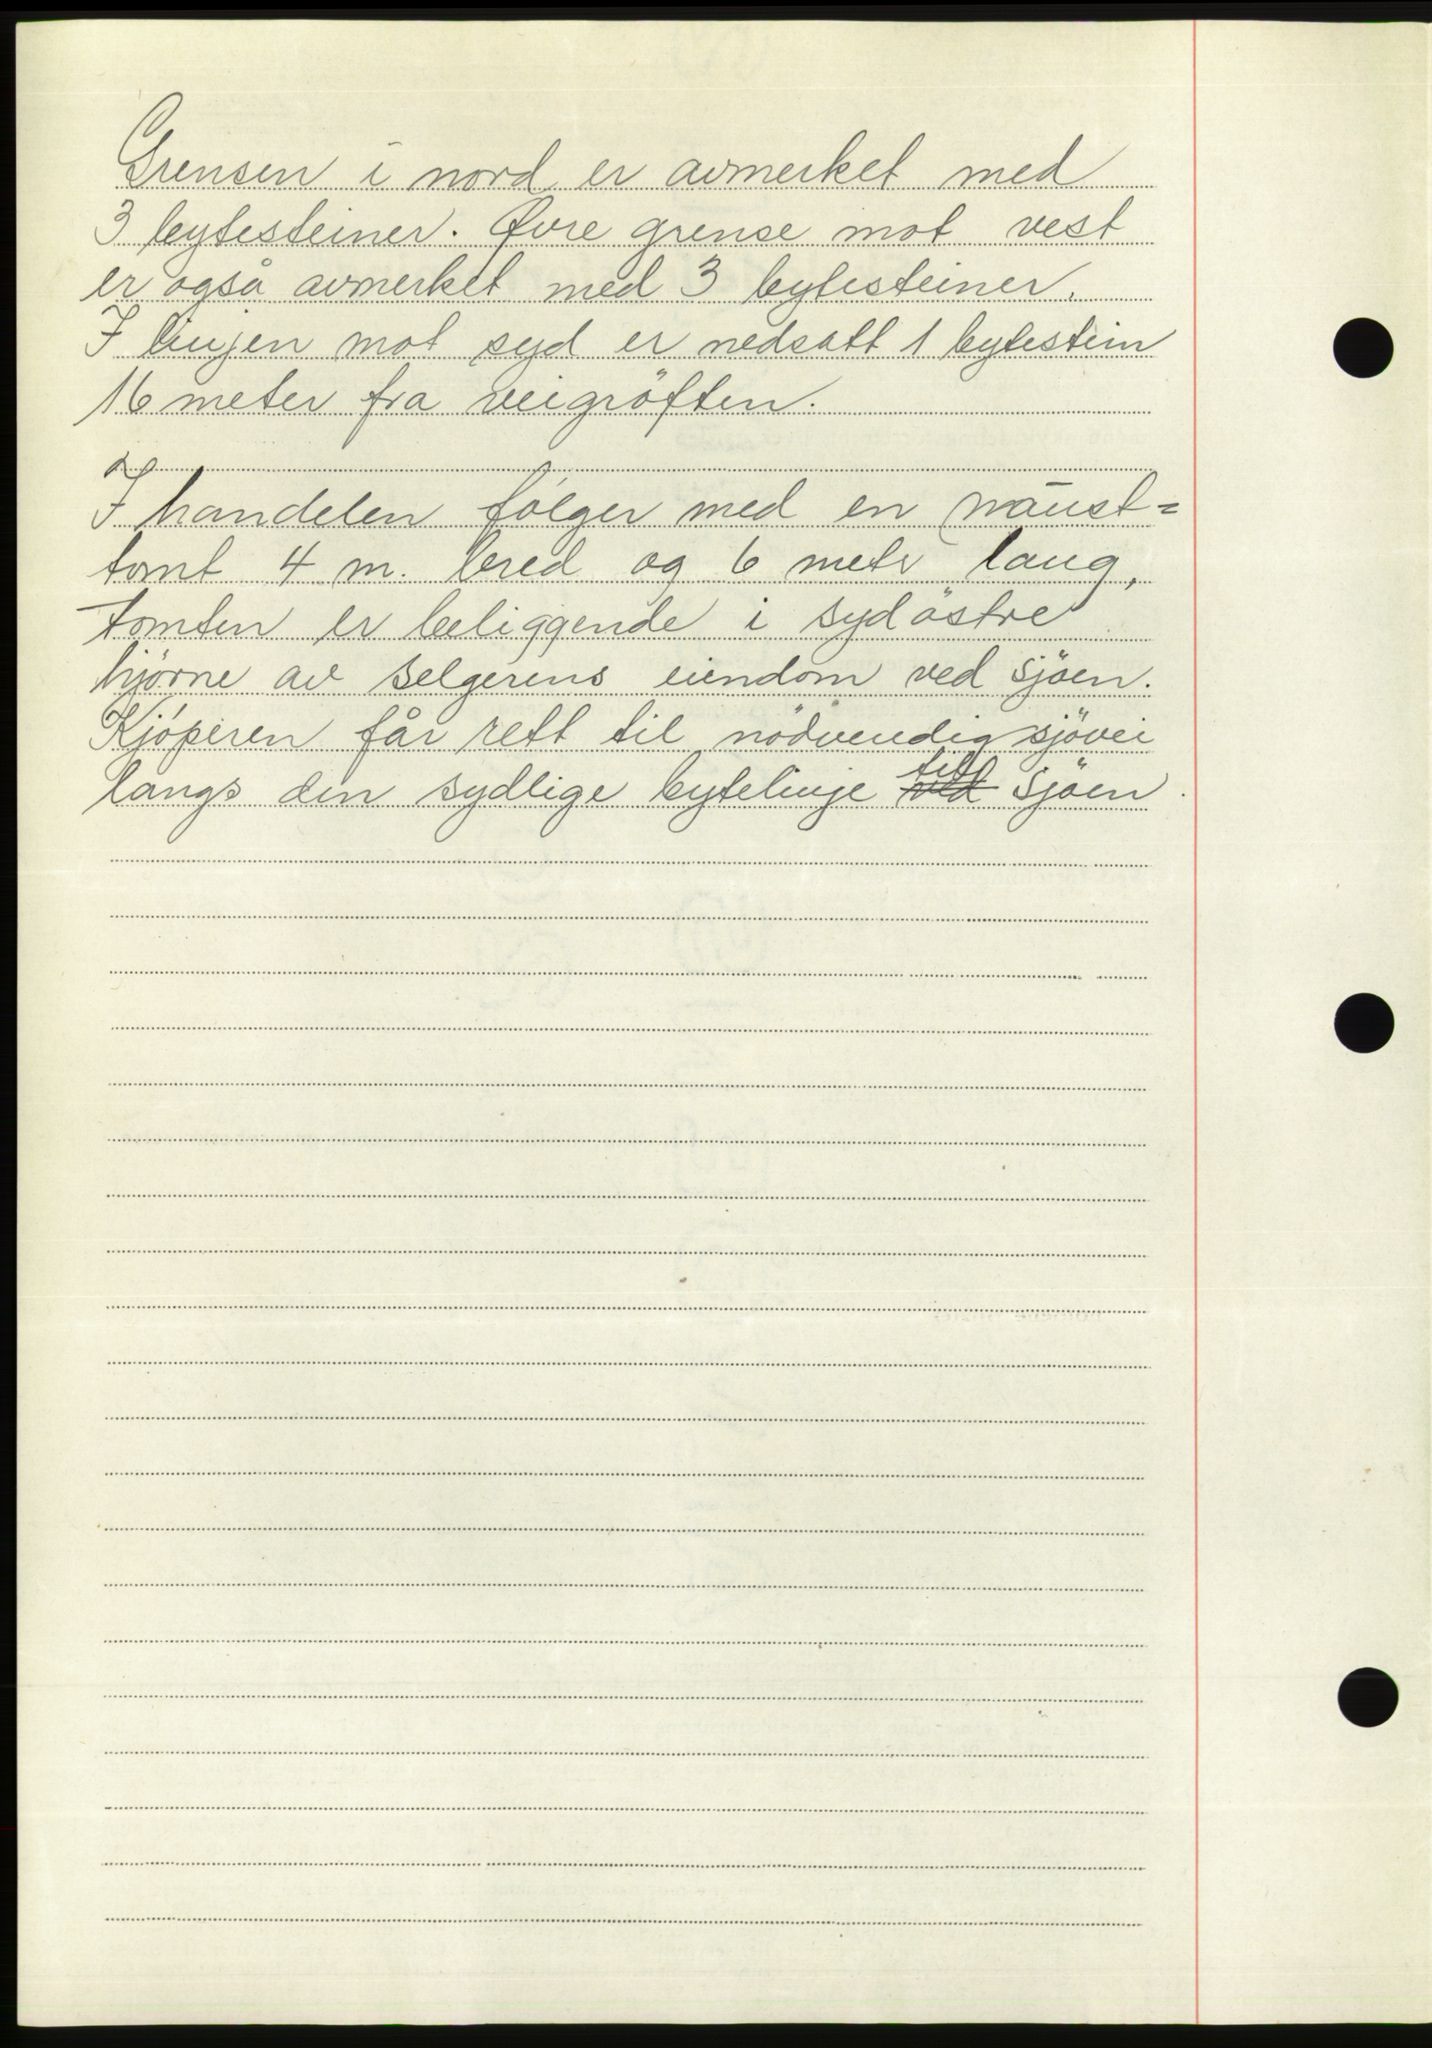 Grensen i nord er avmerket med
3 bytesteiner. Øvre grense mot vest
er også avmerket med 3 bytesteiner.
I linjen mot syd er nedsatt 1 bytestein
16 meter fra veigröften.
I handelen fölger med en naust=
tomt 4 m. bred og 6 meter lang,
tomten er beliggende i sydöstre
hjörne av selgerens eiendom ved sjöen.
Kjöperen får rett til nödvendig sjövei
langs den sydlige bytelinje ved til sjöen.